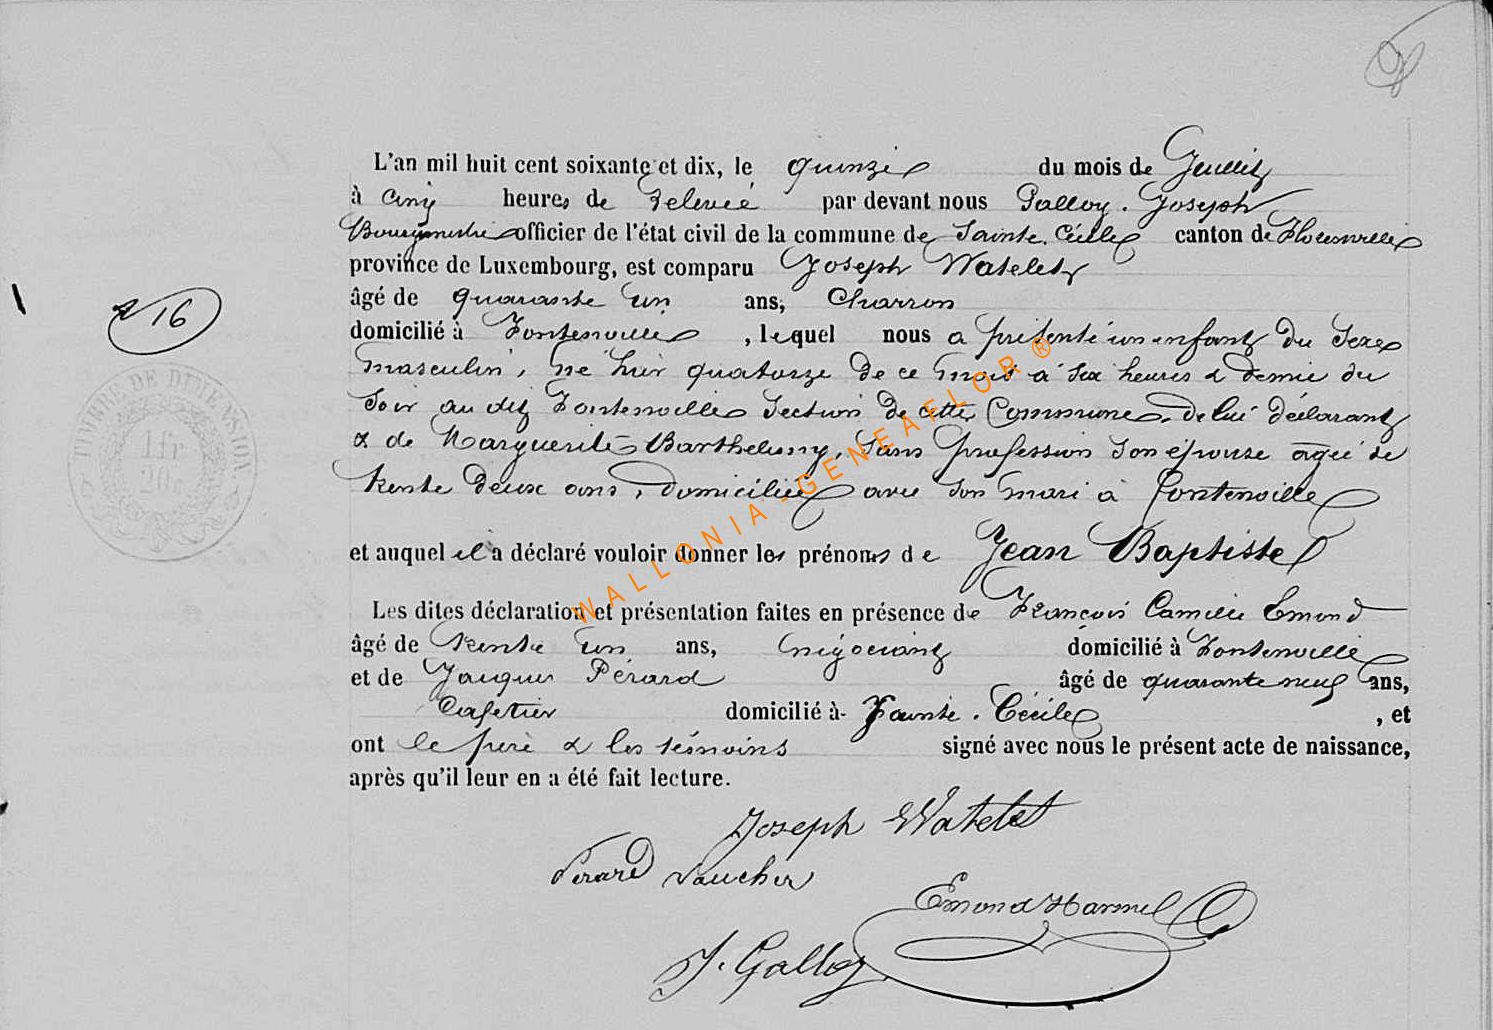 L'an mil huit cent soixante et dix, le quinze du mois de Juillet
à cinq heures de relevée par devant nous Galloy. Joseph
Bourgmestre officier de l'état civil de la commune de Sainte. Cécile canton de Florenville
province de Luxembourg, est comparu Joseph Watelet
âgé de quarante un ans, Charron
N° 16
domicilié à Fontenoille , lequel nous a présenté un enfant du Sexe
masculin, né hier quatorze de ce mois à six heures & demie du
Soir au dit Fontenoille Section de cette Commune, de lui déclarant
& de Marguerite Barthelemy, Sans profession Son épouse agée de
trente deux ans, domiciliée avec Son mari à Fontenoille
et auquel il a déclaré vouloir donner les prénoms de Jean Baptiste
Les dites déclaration et présentation faites en présence de François Camille Emond
âgé de trente un ans, négociant domicilié à Fontenoille
et de Jacques Pérard âgé de quarante neuf ans,
Cafetier domicilié à Sainte. Cécile , et
ont le père & les témoins signé avec nous le présent acte de naissance,
après qu'il leur en a été fait lecture.
Joseph Watelet
Perard Vaucher
Emond Harmel
J. Galloy
TIMBRE DE DIMENSION
1 fr
WALLONIA - GENEAFLOR ®